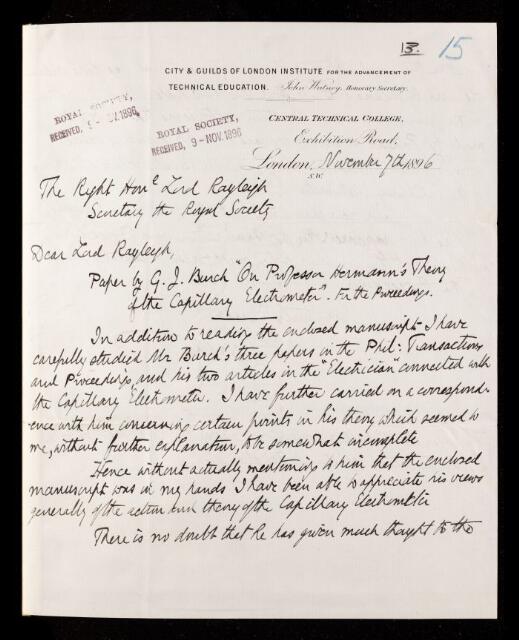 13. 15
CITY & GUILDS OF LONDON INSTITUTE FOR THE ADVANCEMENT OF
TECHNICAL EDUCATION. John Watney, Honorary Secretary.
ROYAL SOCIETY,
RECEIVED, 9 - NOV. 1896,
ROYAL SOCIETY,
RECEIVED, 9 - NOV. 1896
CENTRAL TECHNICAL COLLEGE,
Exhibition Road,
London, November 7th 1896
S.W.
The Right Honle Lord Rayleigh
Secretary the Royal Society
Dear Lord Rayleigh,
Paper by G. J. Burch "On Professor Hermann's Theory
of the Capillary Electrometer". For the Proceedings.
In addition to reading the enclosed manuscript I have
carefully studied Mr Burch's three papers in the Phil: Transactions
and Proceedings, and his two articles in the "Electrician" connected with
the Capillary Electrometer. I have further carried on a correspond-
ence with him concerning certain points in his theory which seemed to
me, without further explanation, to be somewhat incomplete
Hence without actually mentioning to him that the enclosed
manuscript was in my hands I have been able to appreciate his views
generally of the action and theory of the Capillary Electrometer
There is no doubt that he has given much thought to the